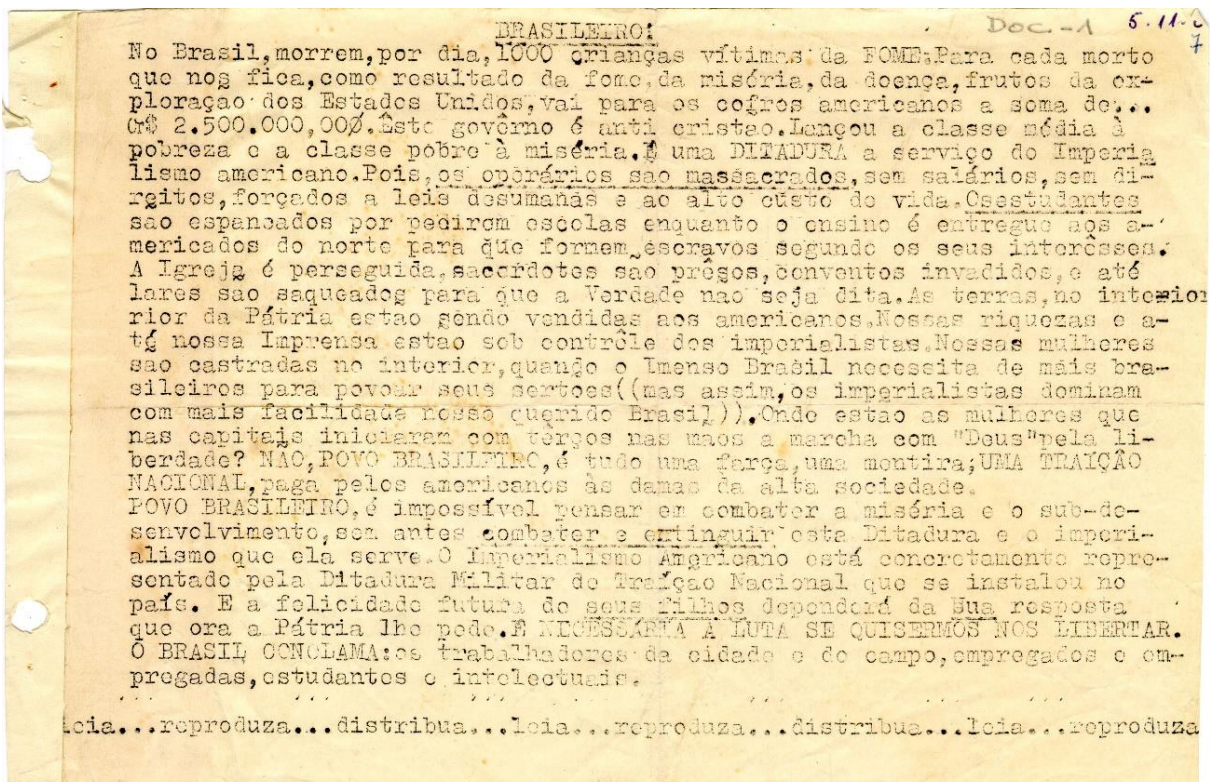 DOC-1 5.11.
7
BRASILEIRO:
No Brasil,morrem,por dia,1000 crianças vítimas da FOME:Para cada morto
que nos fica,como resultado da fome,da miséria,da doença,frutos da ex-
ploraçao dos Estados Unidos,vai para os cofres americanos a soma de...
Cr$ 2.500.000,00.Êste govêrno é anti cristao.Lançou a classe média à
pobreza e a classe pobre à miséria.É uma DITADURA a serviço do Imperia
lismo americano.Pois,os operários sao massacrados,sem salários,sem di-
rgitos,forçados a leis desumanas e ao alto custo de vida.Osestudantes
sao espancados por pedirem escolas enquanto o ensino é entregue aos a-
mericados do norte para que formem escravos segundo os seus interêsses.
A Igreja é perseguida,sacerdotes sao prêsos,conventos invadidos,e até
lares sao saqueados para que a Verdade nao seja dita.As terras,no interior
rior da Pátria estao sendo vendidas aos americanos.Nossas riquezas e a-
té nossa Imprensa estao sob contrôle dos imperialistas.Nossas mulheres
sao castradas no interior,quando o Imenso Brasil necessita de mais bra-
sileiros para povoar seus sertoes((mas assim,os imperialistas dominam
com mais facilidade nosso querido Brasil)).Onde estao as mulheres que
nas capitais iniciaram com terços nas maos a marcha com "Deus"pela li-
berdade? NAO,POVO BRASILEIRO,é tudo uma farça,uma mentira;UMA TRAIÇÃO
NACIONAL,paga pelos americanos às damas da alta sociedade.
POVO BRASILEIRO,é impossível pensar em combater a miséria e o sub-de-
senvolvimento,sem antes combater e extinguir esta Ditadura e o imperi-
alismo que ela serve.O Imperialismo Americano está concretamente repre-
sentado pela Ditadura Militar de Traiçao Nacional que se instalou no
país. E a felicidade futura de seus filhos dependerá da Sua resposta
que ora a Pátria lhe pede.É NECESSÁRIA A LUTA SE QUISERMOS NOS LIBERTAR.
O BRASIL CONCLAMA:os trabalhadores da cidade e do campo,empregados e em-
pregadas,estudantes e intelectuais.
leia...reproduza...distribua...leia...reproduza...distribua...leia...reproduza